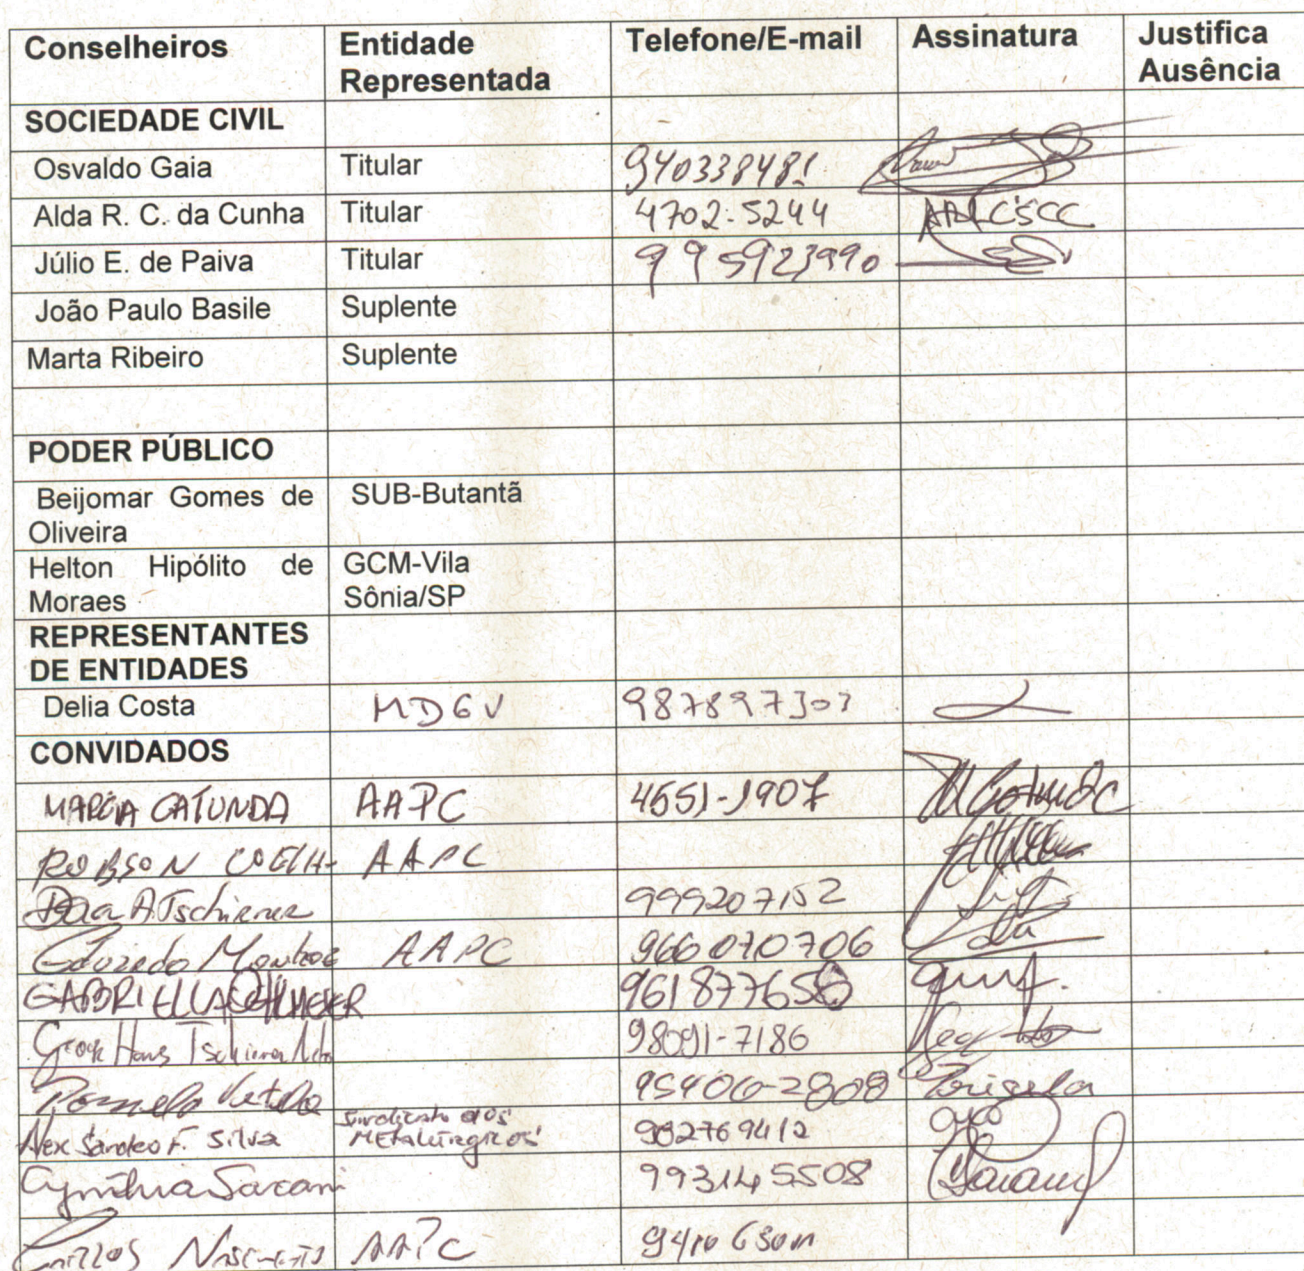 Conselheiros Entidade Representada Telefone/E-mail Assinatura Justifica Ausência
SOCIEDADE CIVIL
Osvaldo Gaia Titular 940338481
Alda R. C. da Cunha Titular 4702-5244
Júlio E. de Paiva Titular 995923990
João Paulo Basile Suplente
Marta Ribeiro Suplente
PODER PÚBLICO
Beijomar Gomes de Oliveira SUB-Butantã
Helton Hipólito de Moraes GCM-Vila Sônia/SP
REPRESENTANTES DE ENTIDADES
Delia Costa MDGV 987897303
CONVIDADOS
MARCIA CATUNDA AAPC 4551-1907
ROBSON COELH AAPC
A. Tschirner 999207152
AAPC 966070706
GABRIELLA 961877650
Georg Hans Tschirner Neto 98091-7186
95406-2808 Priscila
Alex Sandro F. Silva Sindicato dos Metalúrgicos 982769412
Cynthia Sarami 993145508
Carlos Nascimento AAPC